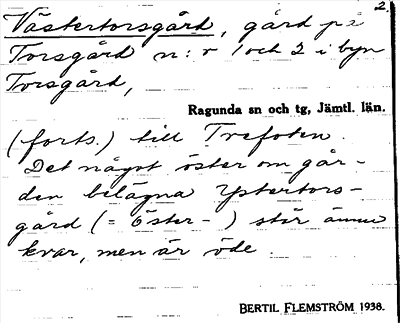 2.
Västertorsgård, gård på
Torsgård n:r 1 och 2 i byn
Torsgård,
Ragunda sn och tg, Jämtl. län.
(forts.) till Trefoten.
Det något öster om går-
den belägna Ystertors-
gård (= Öster- ) står ännu
kvar, men är öde.
BERTIL FLEMSTRÖM 1938.